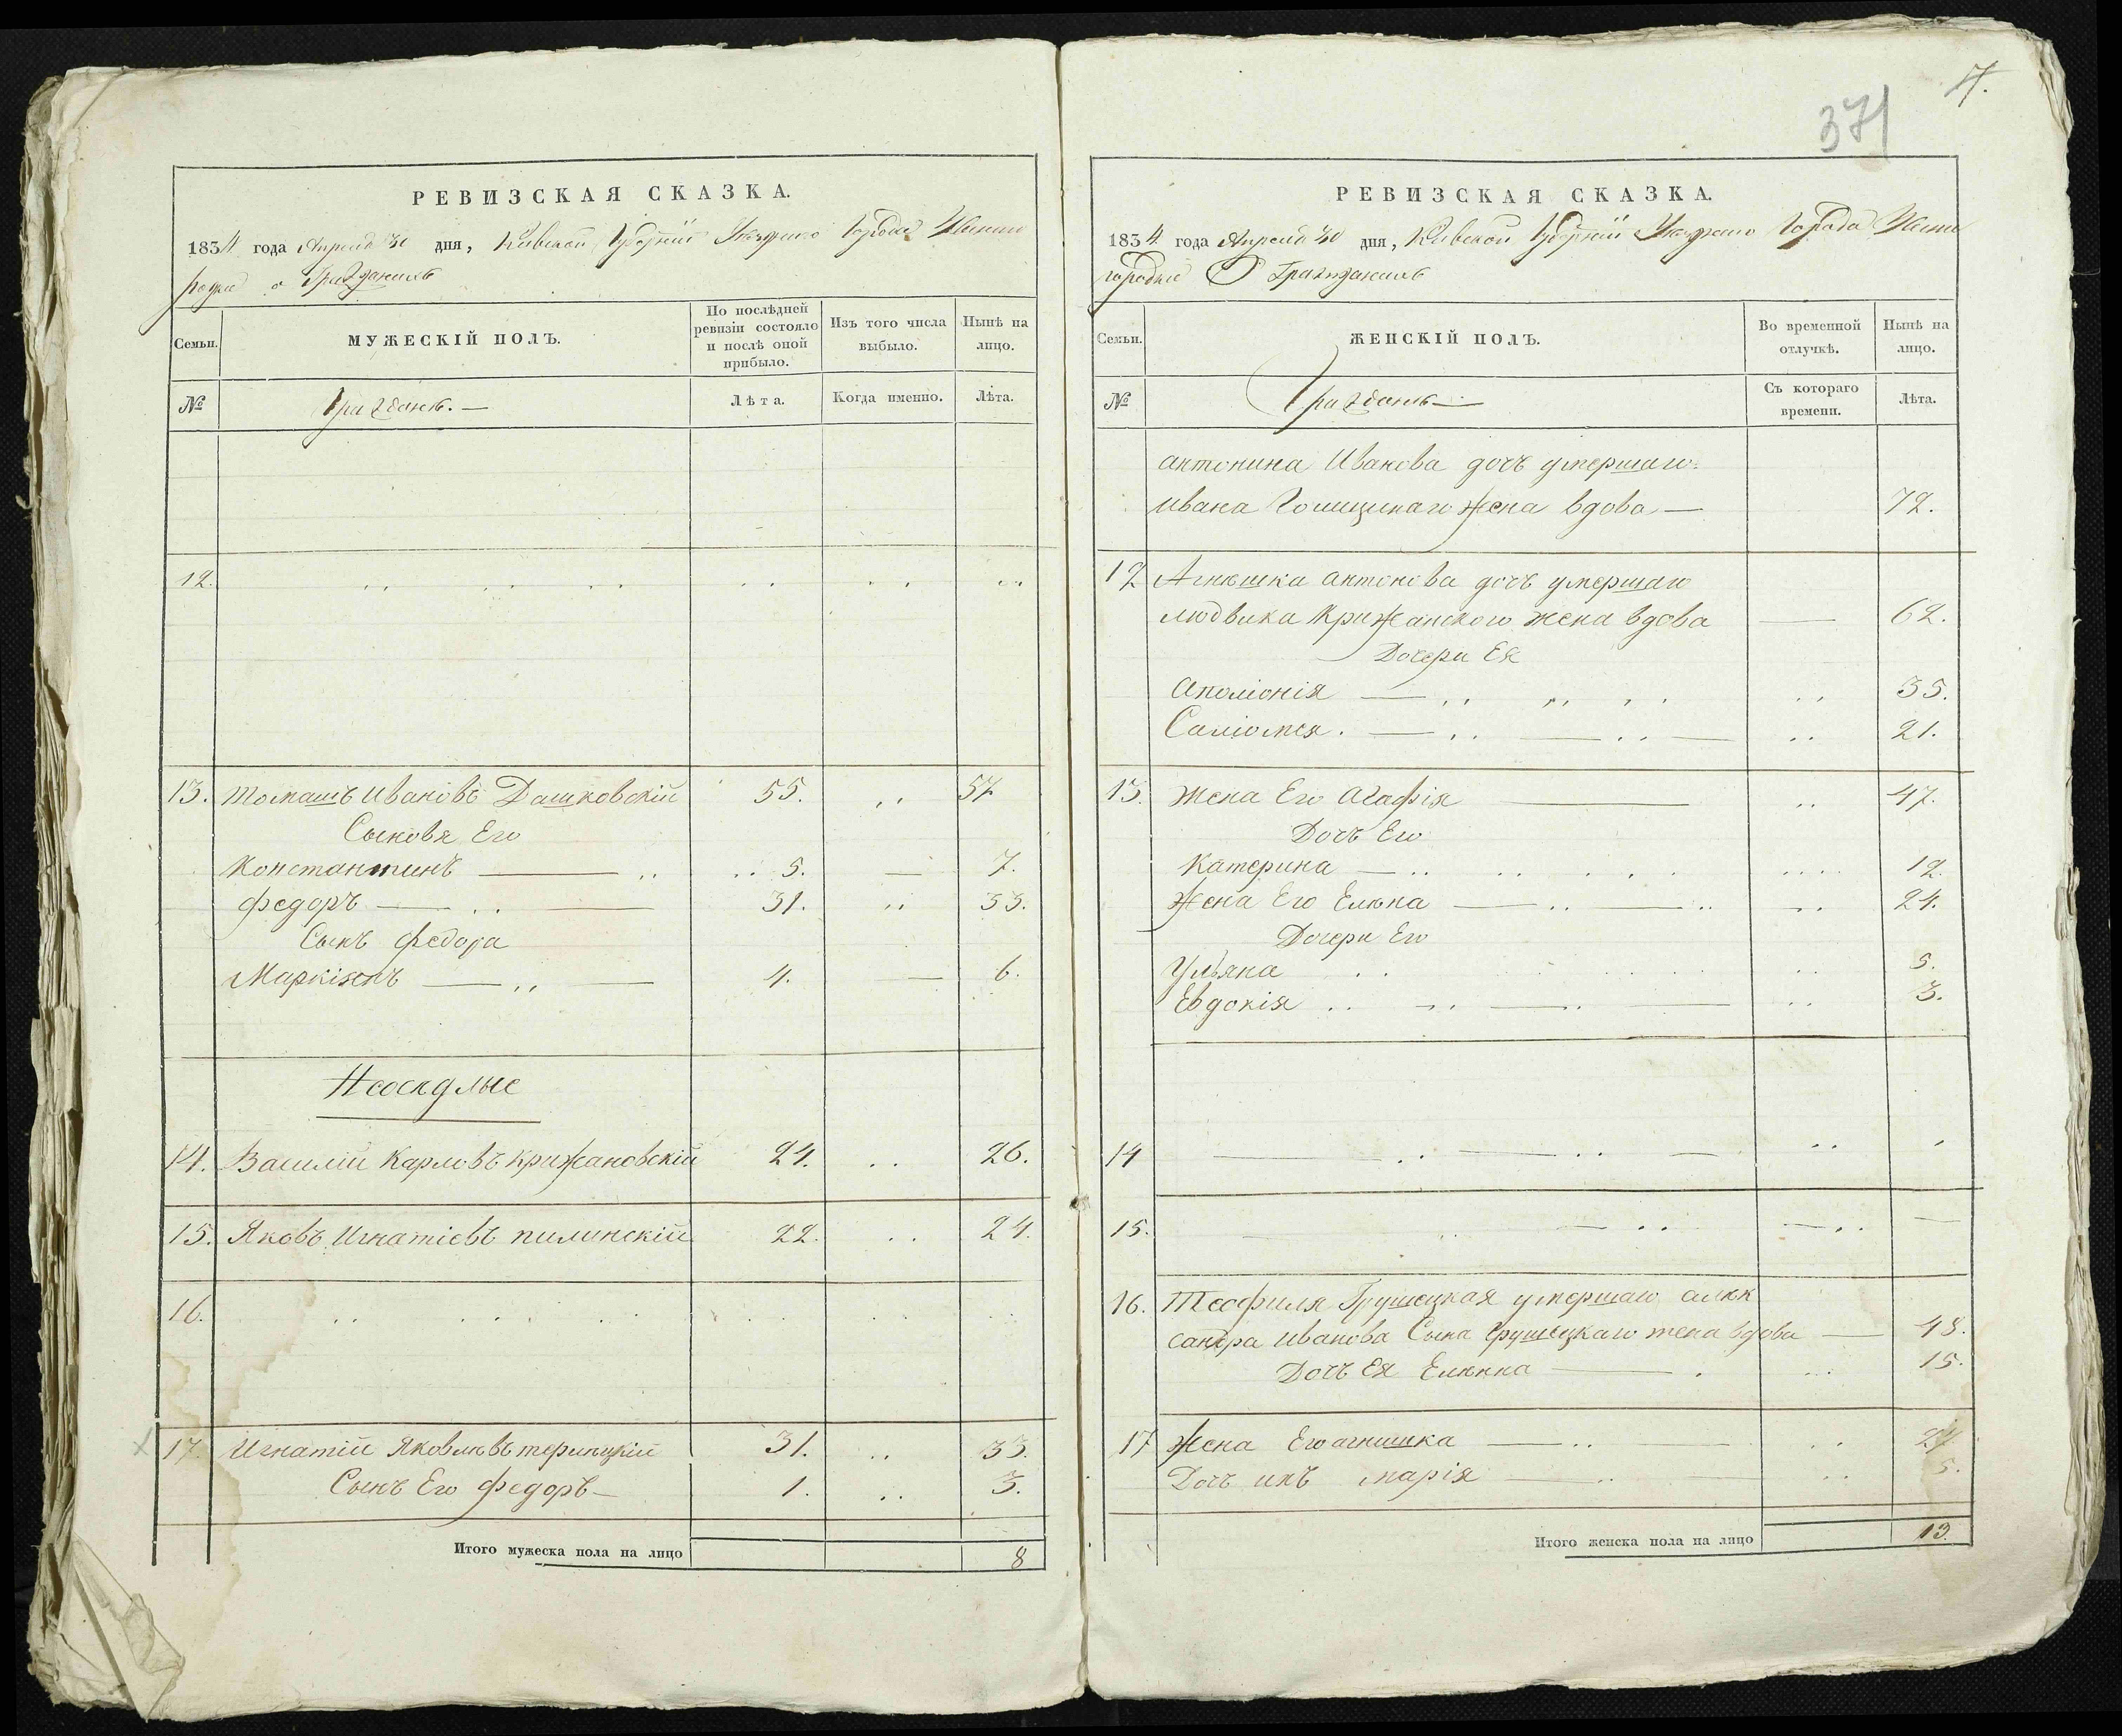 4.
371
РЕВИЗСКАЯ СКАЗКА.
1834 года Апреля 30 дня, Киевской Губернии Уезднаго Города Звени
городки о Гражданахъ
Семьи.
МУЖЕСКІЙ ПОЛЪ.
По послѣдней ревизіи состояло и послѣ оной прибыло.
Изъ того числа выбыло.
Нынѣ на лицо.
№
Граждане.
Лѣта.
Когда именно.
Лѣта.
12.
13. Томашъ Ивановъ Дашковскій 55. 57
Сыновя Его
Константинъ 5. 7.
Федоръ 31. 33.
Сынъ Федора
Маркіянъ 4. 6.
Неосѣдлые
14. Василій Карловъ Крижановскій 24. 26.
15. Яковъ Игнатіевъ Пилинскій 22. 24.
16.
17. Игнатій Яковлевъ 31. 33.
Сынъ Его Федоръ 1. 3.
Итого мужеска пола на лицо 8
РЕВИЗСКАЯ СКАЗКА.
1834 года Апреля 30 дня, Киевской Губернии Уезднаго Города Звени
городки О Гражданахъ
Семьи.
ЖЕНСКІЙ ПОЛЪ.
Во временной отлучкѣ.
Нынѣ на лицо.
№
Граждане
Съ котораго времени.
Лѣта.
антонина Иванова дочъ умершаго
Ивана жена вдова 72.
12 Агнѣшка антонова дочъ умершаго
людвика Крижанского жена вдова 62.
Дочери Ея
Аполіонія 35.
Саліомея. 21.
13. Жена Его Агафія 47.
Дочъ Его
Катерина 12.
Жена Его Елѣна 24.
Дочери Его
Ульяна 5.
Евдокія 3.
14
15.
16. Теофиля Грушецкая умершаго алѣк
сандра Иванова Сына Грушецкаго жена вдова 48.
Дочъ Ея Елѣнна 15.
17 Жена Его агнишка 27
Дочъ ихъ марія 5.
Итого женска пола на лицо 13.